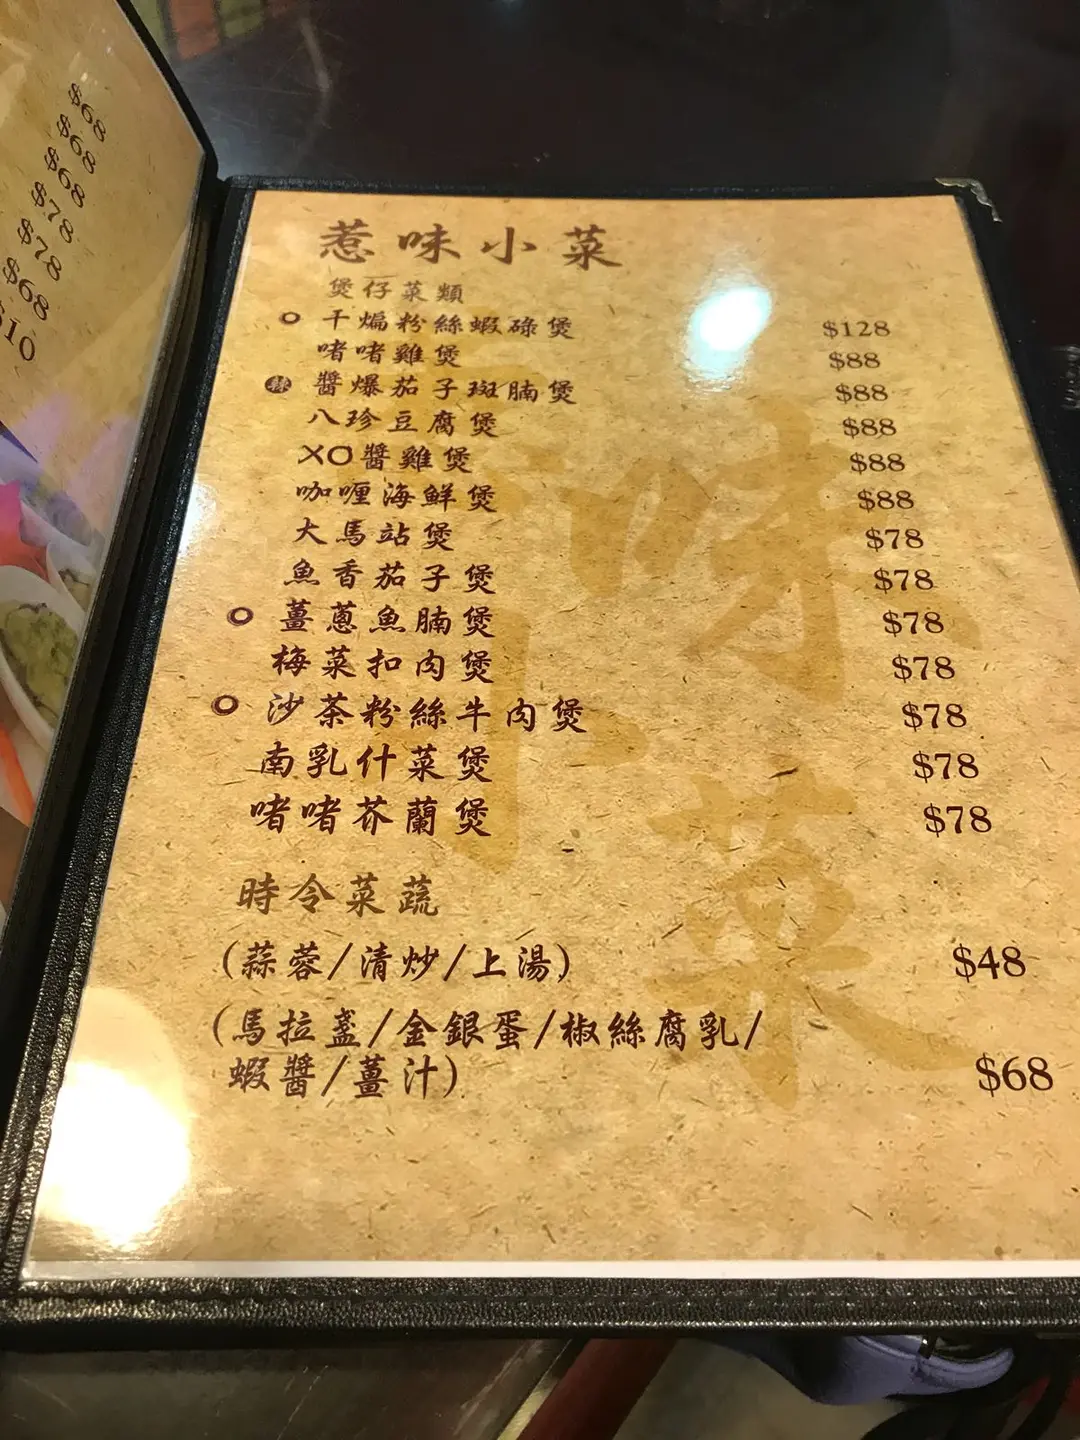 $68
$68
$68
$78
$78
$68
$10
惹味小菜
煲仔菜類
干煸粉絲蝦碌煲 $128
啫啫雞煲 $88
辣 醬爆茄子斑腩煲 $88
八珍豆腐煲 $88
XO醬雞煲 $88
咖喱海鮮煲 $88
大馬站煲 $78
魚香茄子煲 $78
薑蔥魚腩煲 $78
梅菜扣肉煲 $78
沙茶粉絲牛肉煲 $78
南乳什菜煲 $78
啫啫芥蘭煲 $78
時令菜蔬
(蒜蓉/清炒/上湯) $48
(馬拉盞/金銀蛋/椒絲腐乳/
蝦醬/薑汁) $68